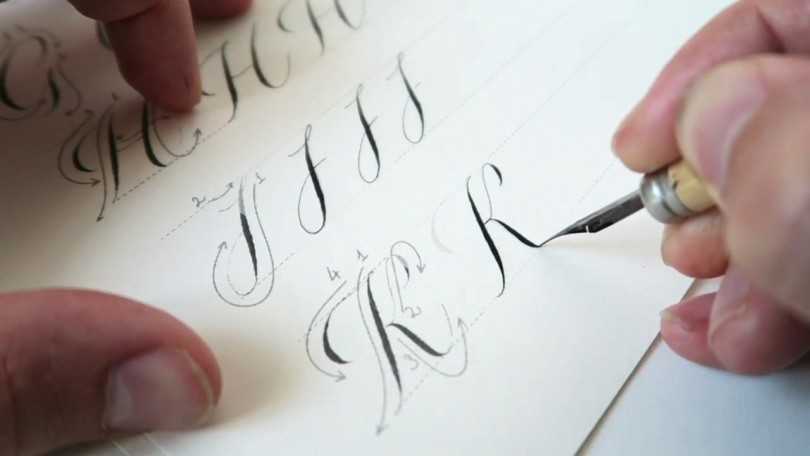 H H H
2 1
J J J J
4 1 2 3
K K